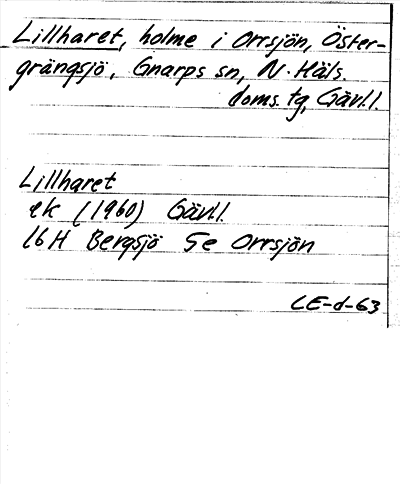 Lillharet, holme i Orrsjön, Öster-
grängsjö, Gnarps sn, N. Häls.
doms. tg, Gävl.l.
Lillharet
ek (1960) Gävl.l.
16H Bergsjö 5e Orrsjön
LE-d-63